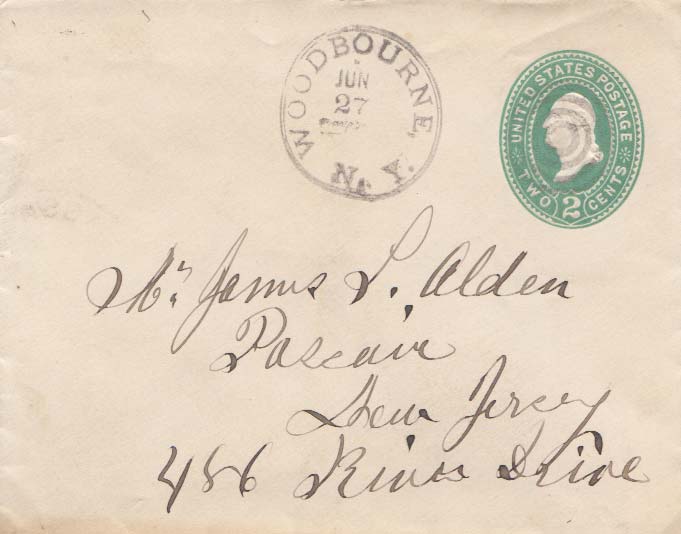 WOODBOURNE, N. Y.
JUN
27
UNITED STATES POSTAGE
TWO 2 CENTS
Mr. James S. Alden
Passaic
New Jersey
486 River Drive